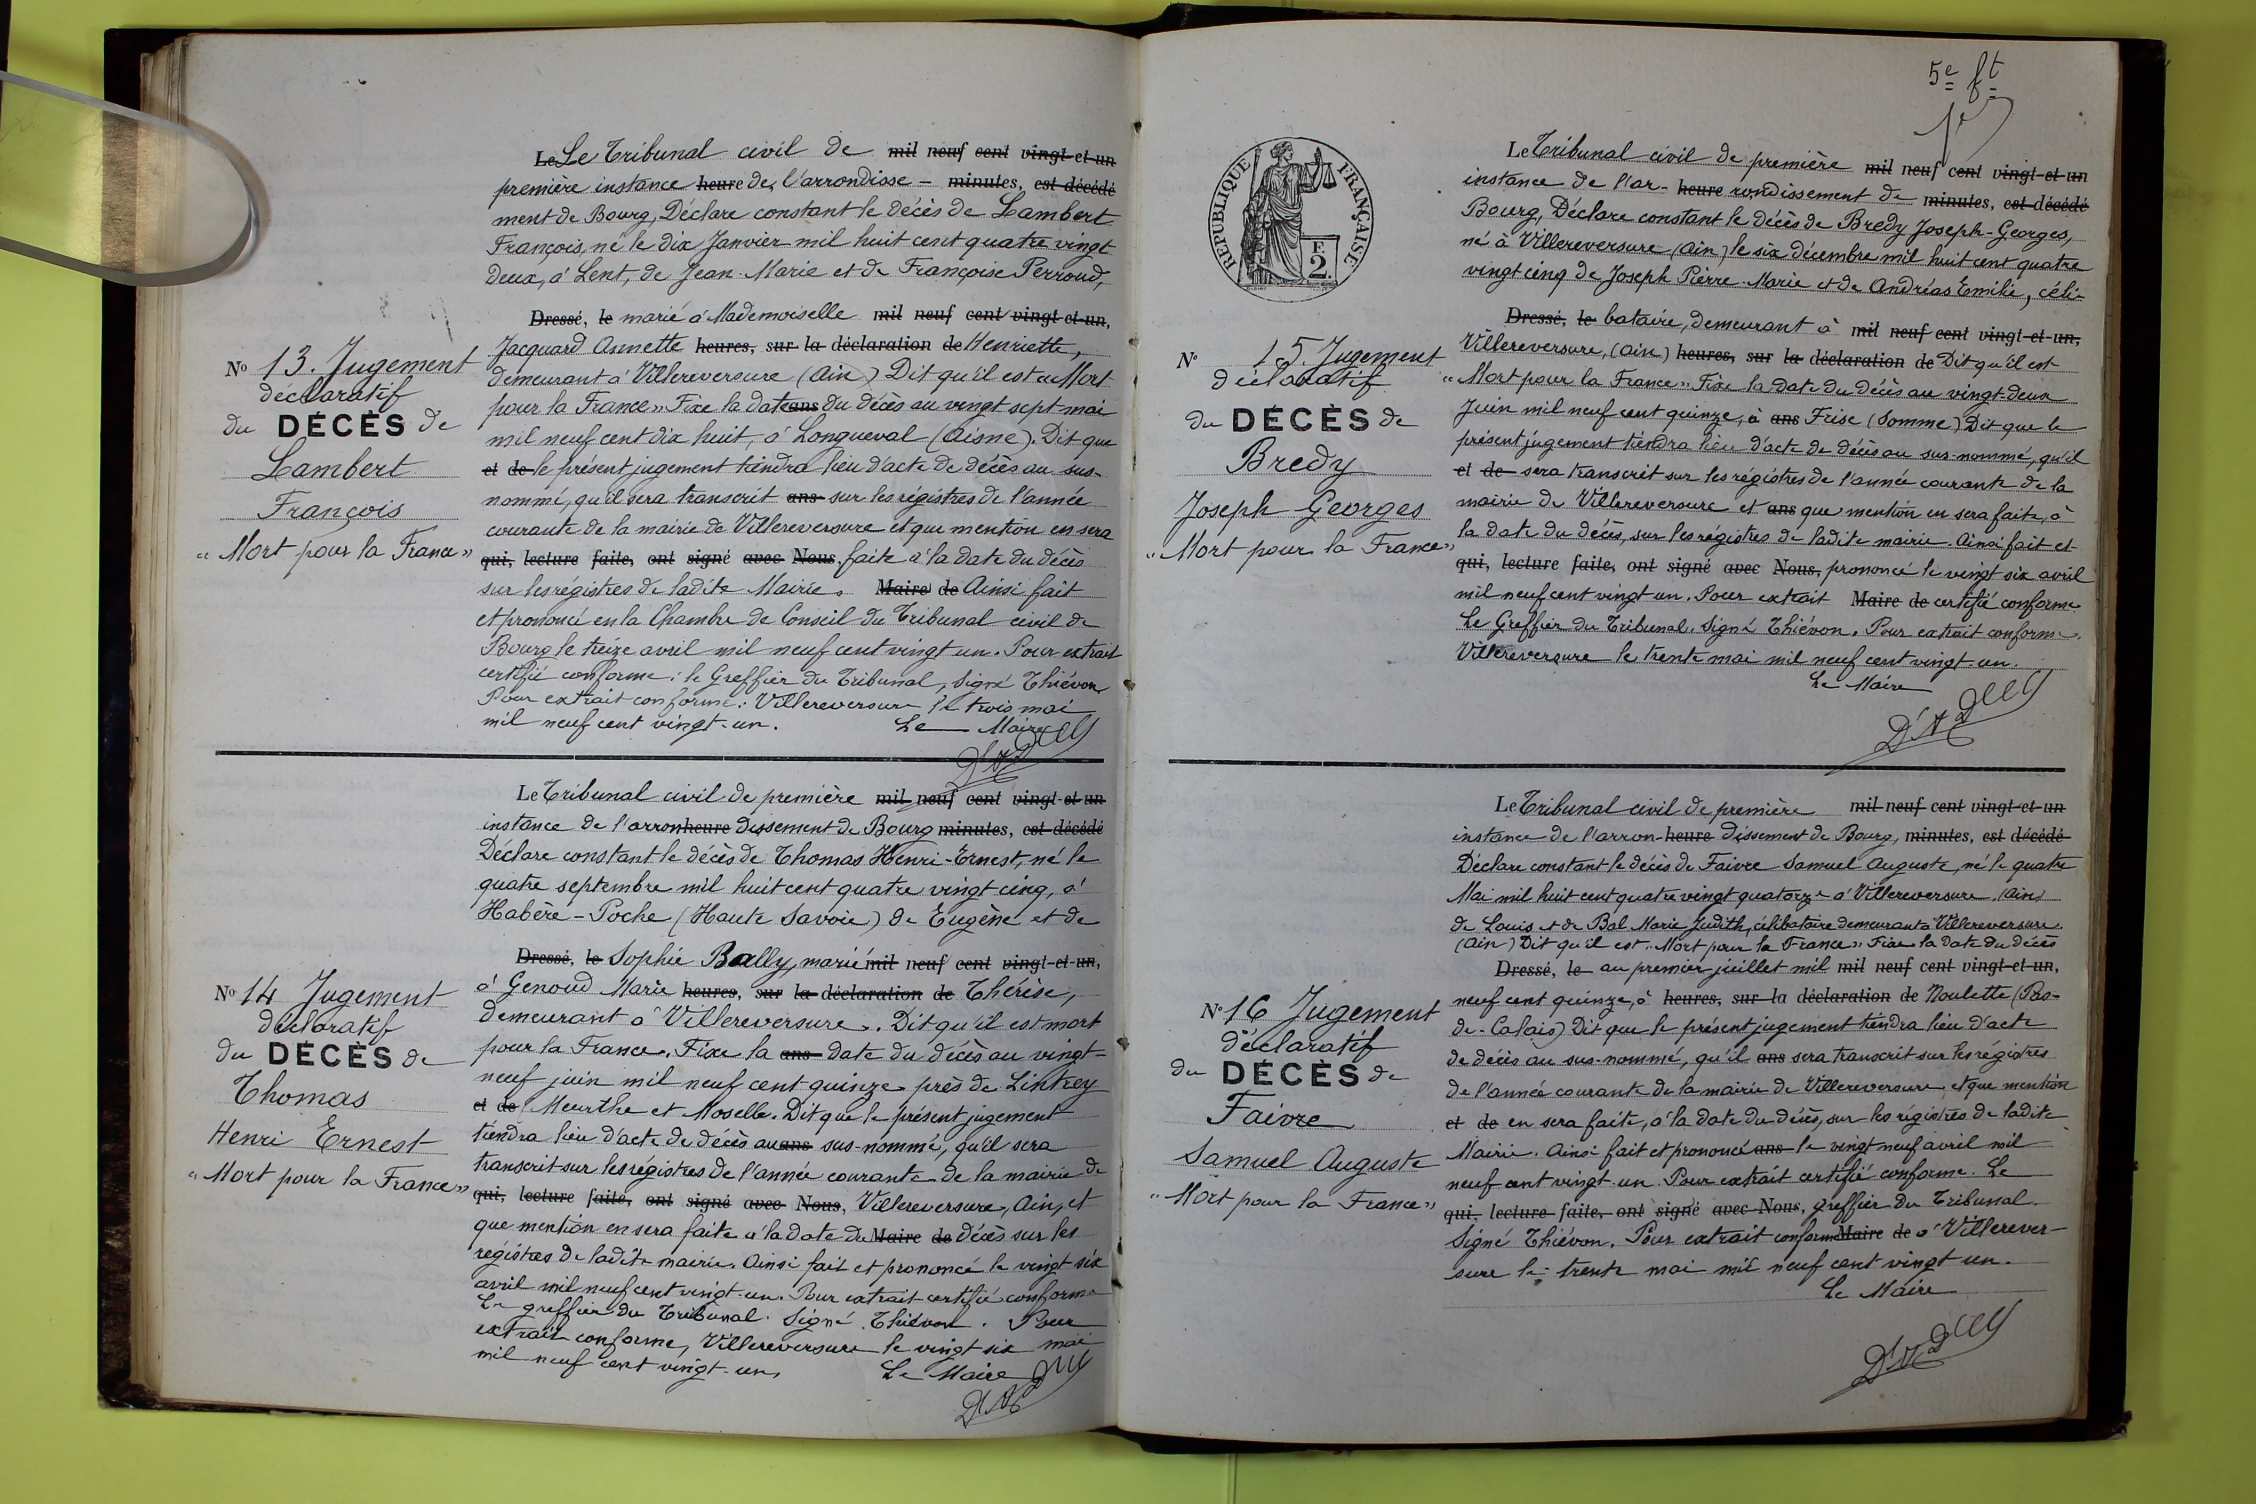 Le Le Tribunal civil de mil neuf cent vingt-et-un
première instance heure de l'arrondisse- minutes, est décédé
ment de Bourg, Déclare constant le décès de Lambert
François, né le dix Janvier mil huit cent quatre vingt
deux, à Lent, de Jean-Marie et de Françoise Perroud,
Dressé, le marié à Mademoiselle mil neuf cent vingt-et-un,
Jacquard Annette heures, sur la déclaration de Henriette,
demeurant à Villereversure (Ain) Dit qu'il est "Mort
pour la France" Fixe la date ans du décès au vingt sept mai
mil neuf cent dix huit, à Longueval (Aisne). Dit que
et de le présent jugement tiendra lieu d'acte de décès au sus-
nommé, qu'il sera transcrit ans sur les régistres de l'année
courante de la mairie de Villereversure et que mention en sera
qui, lecture faite, ont signé avec Nous, faite à la date du décès
sur les régistres de ladite Mairie. Maire de Ainsi fait
et prononcé en la Chambre de Conseil du Tribunal civil de
Bourg le treize avril mil neuf cent vingt un. Pour extrait
certifié conforme: le Greffier du Tribunal, signé Thiévon
Pour extrait conforme: Villereversure le trois mai
mil neuf cent vingt-un. Le Maire
No 13. Jugement
déclaratif
du DÉCÈS de
Lambert
François
"Mort pour la France"
Le Tribunal civil de première mil neuf cent vingt-et-un
instance de l'arron heure dissement de Bourg minutes, est décédé
Déclare constant le décès de Thomas Henri-Ernest, né le
quatre septembre mil huit cent quatre vingt cinq, à
Habère-Poche (Haute Savoie) de Eugène et de
Dressé, le Sophie Bally, marié mil neuf cent vingt-et-un,
à Genoud Marie heures, sur la déclaration de Thérèse,
demeurant à Villereversure. Dit qu'il est mort
pour la France. Fixe la ans date du décès au vingt-
neuf juin mil neuf cent quinze près de Lintrey
et de (Meurthe et Moselle. Dit que le présent jugement
tiendra lieu d'acte de décès au ans sus-nommé, qu'il sera
transcrit sur les régistres de l'année courante de la mairie de
qui, lecture faite, ont signé avec Nous, Villereversure, Ain, et
que mention en sera faite à la date du Maire de décès sur les
régistres de ladite mairie. Ainsi fait et prononcé le vingt six
avril mil neuf cent vingt-un. Pour extrait certifié conforme
Le greffier du Tribunal. Signé Thiévon. Pour
extrait conforme, Villereversure le vingt six mai
mil neuf cent vingt-un, Le Maire
No 14 Jugement
déclaratif
du DÉCÈS de
Thomas
Henri Ernest
"Mort pour la France"
5e ft
RÉPUBLIQUE FRANÇAISE
F.
2.
Le Tribunal civil de première mil neuf cent vingt-et-un
instance de l'ar- heure rondissement de minutes, est décédé
Bourg, Déclare constant le décès de Bredy Joseph-Georges,
né à Villereversure (Ain) le six décembre mil huit cent quatre
vingt cinq de Joseph Pierre-Marie et de Andréas Emilie, céli-
Dressé, le bataire, demeurant à mil neuf cent vingt-et-un,
Villereversure, (Ain) heures, sur la déclaration de Dit qu'il est
"Mort pour la France" Fixe la date du décès au vingt-deux
Juin mil neuf cent quinze, à ans Frise (Somme) Dit que le
présent jugement tiendra lieu d'acte de décès au sus-nommé, qu'il
et de sera transcrit sur les régistres de l'année courante de la
mairie de Villereversure et ans que mention en sera faite, à
la date du décès, sur les régistres de ladite mairie. Ainsi fait et
qui, lecture faite, ont signé avec Nous, prononcé le vingt six avril
mil neuf cent vingt un. Pour extrait Maire de certifié conforme
Le Greffier du Tribunal. Signé Thiévon. Pour extrait conforme.
Villereversure le trente mai mil neuf cent vingt-un.
Le Maire
No 15. Jugement
déclaratif
du DÉCÈS de
Bredy
Joseph Georges
"Mort pour la France"
Le Tribunal civil de première mil neuf cent vingt-et-un
instance de l'arron- heure dissement de Bourg, minutes, est décédé
Déclare constant le décès de Faivre Samuel Auguste, né le quatre
Mai mil huit cent quatre vingt quatorze à Villereversure (Ain)
de Louis et de Bal Marie Judith, célibataire demeurant à Villereversure.
(Ain) Dit qu'il est "Mort pour la France" Fixe la date du décès
Dressé, le au premier juillet mil mil neuf cent vingt-et-un,
neuf cent quinze, à heures, sur la déclaration de Noulette (Pas-
de-Calais) Dit que le présent jugement tiendra lieu d'acte
de décès au sus-nommé, qu'il ans sera transcrit sur les régistres
de l'année courante de la mairie de Villereversure et que mention
et de en sera faite, à la date du décès, sur les régistres de ladite
Mairie. Ainsi fait et prononcé ans le vingt neuf avril mil
neuf cent vingt-un. Pour extrait certifié conforme. Le
qui, lecture faite, ont signé avec Nous, greffier du Tribunal.
Signé Thiévon. Pour extrait conforme Maire de à Villerever-
sure le trente mai mil neuf cent vingt un.
Le Maire
No 16 Jugement
déclaratif
du DÉCÈS de
Faivre
Samuel Auguste
"Mort pour la France"